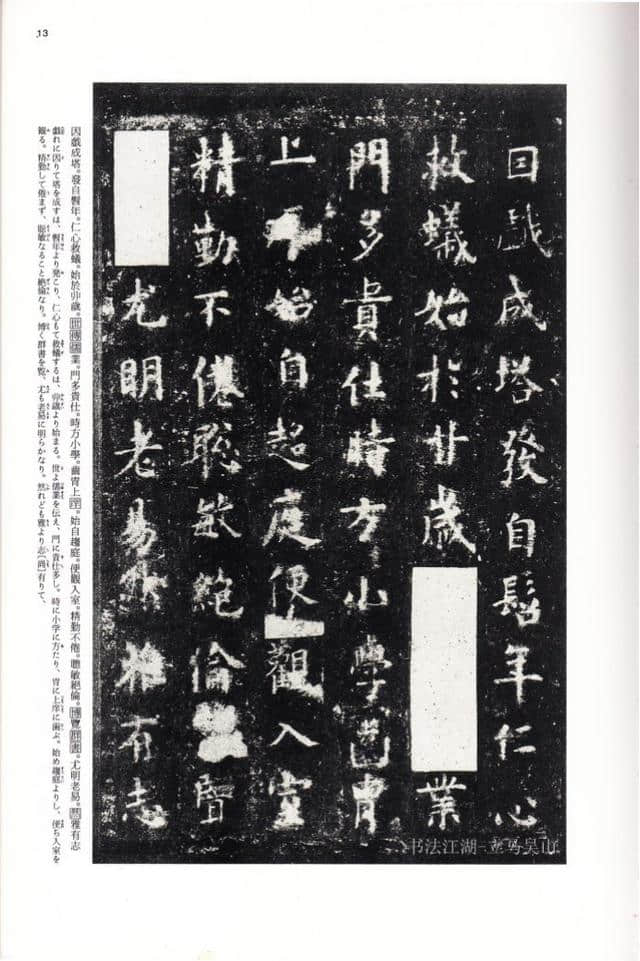 13
因戲成塔發自髫年仁心
救蟻始於丱歲業
門多貴仕時方小學齒胄
上庠始自趨庭便觀入室
精勤不倦聡敏絶倫博覽
尤明老易然雅有志
因戲成塔。發自髫年。仁心救蟻。始於丱歲。世傳儒業。門多貴仕。時方小學。齒胄上庠。始自趨庭。便觀入室。精勤不倦。聰敏絶倫。博覽群書。尤明老易。然雅有志
戯れに因りて塔を成すは、髫年より発こり、仁心もて救蟻するは、丱歳より始まる。世よ儒業を伝え、門に貴仕多し。時に小学に方たり、胄に上庠に歯ぶ。始め趨庭よりし、便ち入室を
観る。精勤して倦まず、聡敏なること絶倫なり。博く群書を覧、尤も老易に明らかなり。然れども雅より志〔尚〕有りて、
书法江湖-立马吴山